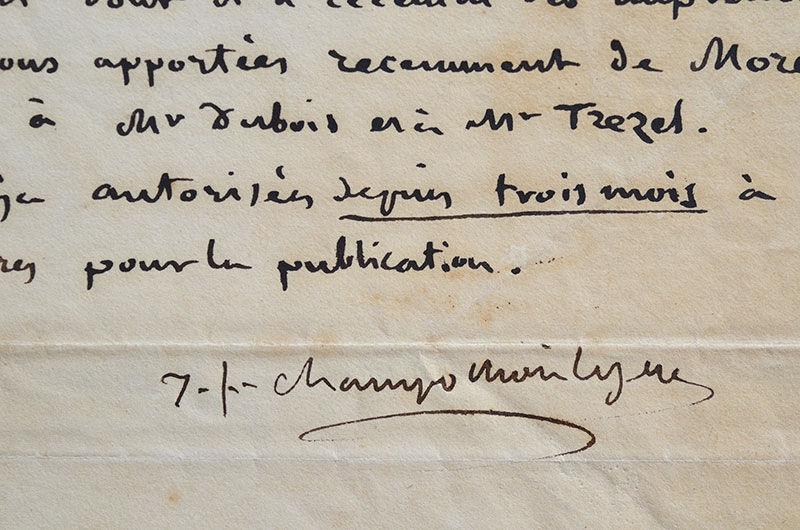 ous apportées recemment de More
à Mr Dubois et à Mr Trezel.
autorisées depuis trois mois à
pour la publication.
J-f- champollion le jeune